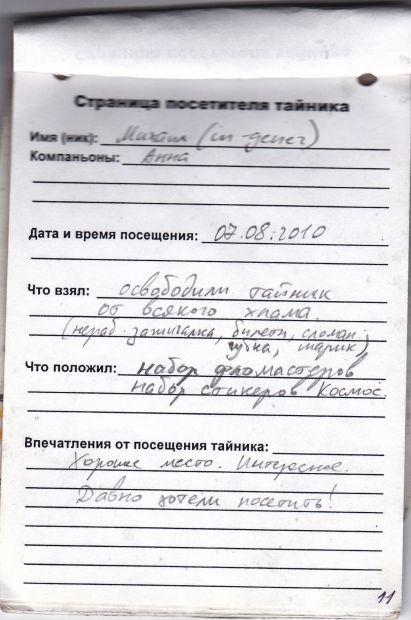 Страница посетителя тайника
Имя (ник): Михаил (in-gener)
Компаньоны: Анна
Дата и время посещения: 07.08.2010
Что взял: освободили тайник
от всякого хлама.
(нераб. зажигалка, билеты, сломан.
шарик)
Что положил: набор фломастеров
набор стикеров Космос.
Впечатления от посещения тайника:
Хорошее место. Интересное.
Давно хотели посетить!
11